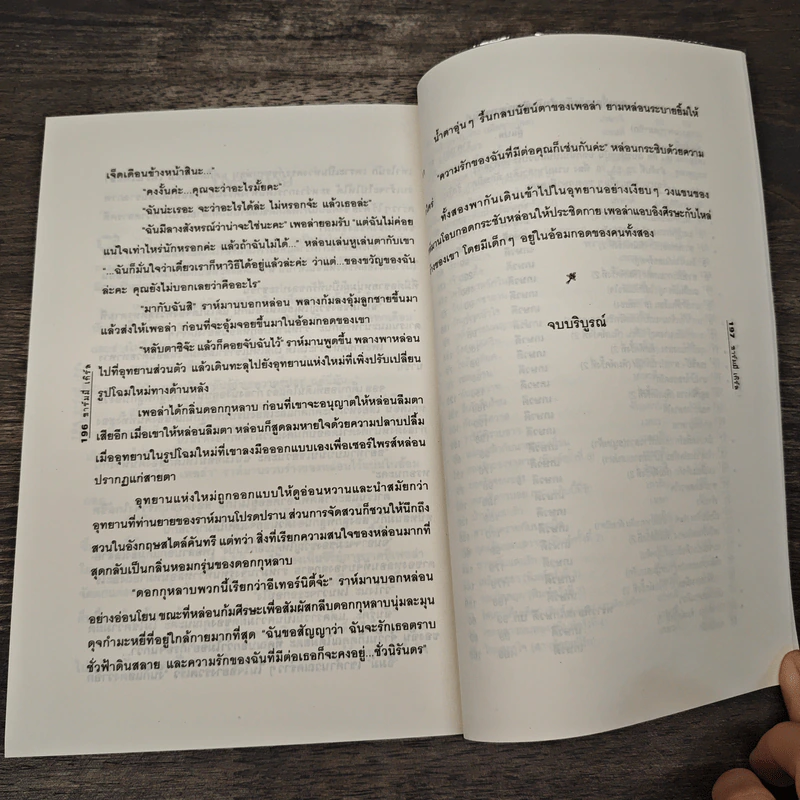 เจ็ดเดือนข้างหน้าสินะ..."
"คงงั้นค่ะ...คุณจะว่าอะไรมั้ยคะ"
"ฉันน่ะเรอะ จะว่าอะไรได้ล่ะ ไม่หรอกจ้ะ แล้วเธอล่ะ"
"ฉันมีลางสังหรณ์ว่าน่าจะใช่นะคะ" เพอล่ายอมรับ "แต่ฉันไม่ค่อย
แน่ใจเท่าไหร่นักหรอกค่ะ แล้วถ้าฉันไม่ได้..." หล่อนเล่นหูเล่นตากับเขา
"...ฉันก็มั่นใจว่าเดี๋ยวเราก็หาวิธีได้อยู่แล้วล่ะค่ะ ว่าแต่...ของขวัญของฉัน
ล่ะคะ คุณยังไม่บอกเลยว่าคืออะไร"
"มากับฉันสิ" ราห์มานบอกหล่อน พลางก้มลงอุ้มลูกชายขึ้นมา
แล้วส่งให้เพอล่า ก่อนที่จะอุ้มจอยขึ้นมาในอ้อมกอดของเขา
"หลับตาซิจ๊ะ แล้วก็คอยจับฉันไว้" ราห์มานพูดขึ้น พลางพาหล่อน
ไปที่อุทยานส่วนตัว แล้วเดินทะลุไปยังอุทยานแห่งใหม่ที่เพิ่งปรับเปลี่ยน
รูปโฉมใหม่ทางด้านหลัง
เพอล่าได้กลิ่นดอกกุหลาบ ก่อนที่เขาจะอนุญาตให้หล่อนลืมตา
เสียอีก เมื่อเขาให้หล่อนลืมตา หล่อนก็สูดลมหายใจด้วยความปลาบปลื้ม
เมื่ออุทยานในรูปโฉมใหม่ที่เขาลงมือออกแบบเองเพื่อเซอร์ไพรส์หล่อน
ปรากฏแก่สายตา
อุทยานแห่งใหม่ถูกออกแบบให้ดูอ่อนหวานและนำสมัยกว่า
อุทยานที่ท่านยายของราห์มานโปรดปราน ส่วนการจัดสวนก็ชวนให้นึกถึง
สวนในอังกฤษสไตล์คันทรี แต่ทว่า สิ่งที่เรียกความสนใจของหล่อนมากที่
สุดกลับเป็นกลิ่นหอมกรุ่นของดอกกุหลาบ
"ดอกกุหลาบพวกนี้เรียกว่าอีเทอร์นิตี้จ้ะ" ราห์มานบอกหล่อน
อย่างอ่อนโยน ขณะที่หล่อนก้มศีรษะเพื่อสัมผัสกลีบดอกกุหลาบนุ่มละมุน
ดุจกำมะหยี่ที่อยู่ใกล้กายมากที่สุด "ฉันขอสัญญาว่า ฉันจะรักเธอตราบ
ชั่วฟ้าดินสลาย และความรักของฉันที่มีต่อเธอก็จะคงอยู่...ชั่วนิรันดร"
196 ชาร์มมี่ เกิร์ล
น้ำตาอุ่นๆ รื้นกลบนัยน์ตาของเพอล่า ยามหล่อนระบายยิ้มให้
"ความรักของฉันที่มีต่อคุณก็เช่นกันค่ะ" หล่อนกระซิบด้วยความ
ทั้งสองพากันเดินเข้าไปในอุทยานอย่างเงียบๆ วงแขนของ
โอบกอดกระชับหล่อนให้ประชิดกาย เพอล่าแอบอิงศีรษะกับไหล่
ของเขา โดยมีเด็กๆ อยู่ในอ้อมกอดของคนทั้งสอง
จบบริบูรณ์
197 ชาร์มมี่ เกิร์ล